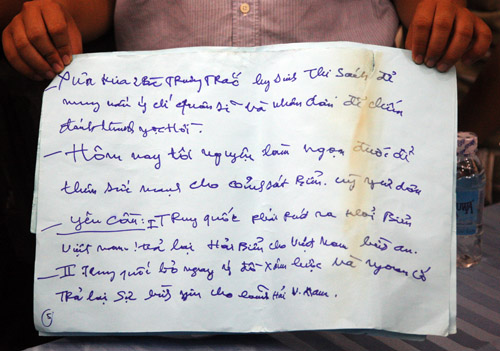 - Xưa kia 2 Bà Trưng Trắc hy sinh Thi Sách để
nung nấu ý chí quân sĩ và nhân dân để chiến
đánh
- Hôm nay tôi nguyện làm ngọn đuốc để
thêm sức mạnh cho cảnh sát biển. ngư dân
- Yêu Cầu: I Trung quốc phải rút ra khỏi Biển
Việt nam! trả lại Hải Biển cho Việt Nam bình an.
- II Trung quốc bỏ ngay ý đồ xâm lược và ngoan cố
Trả lại Sự bình yên cho lãnh Hải V. Nam.
5